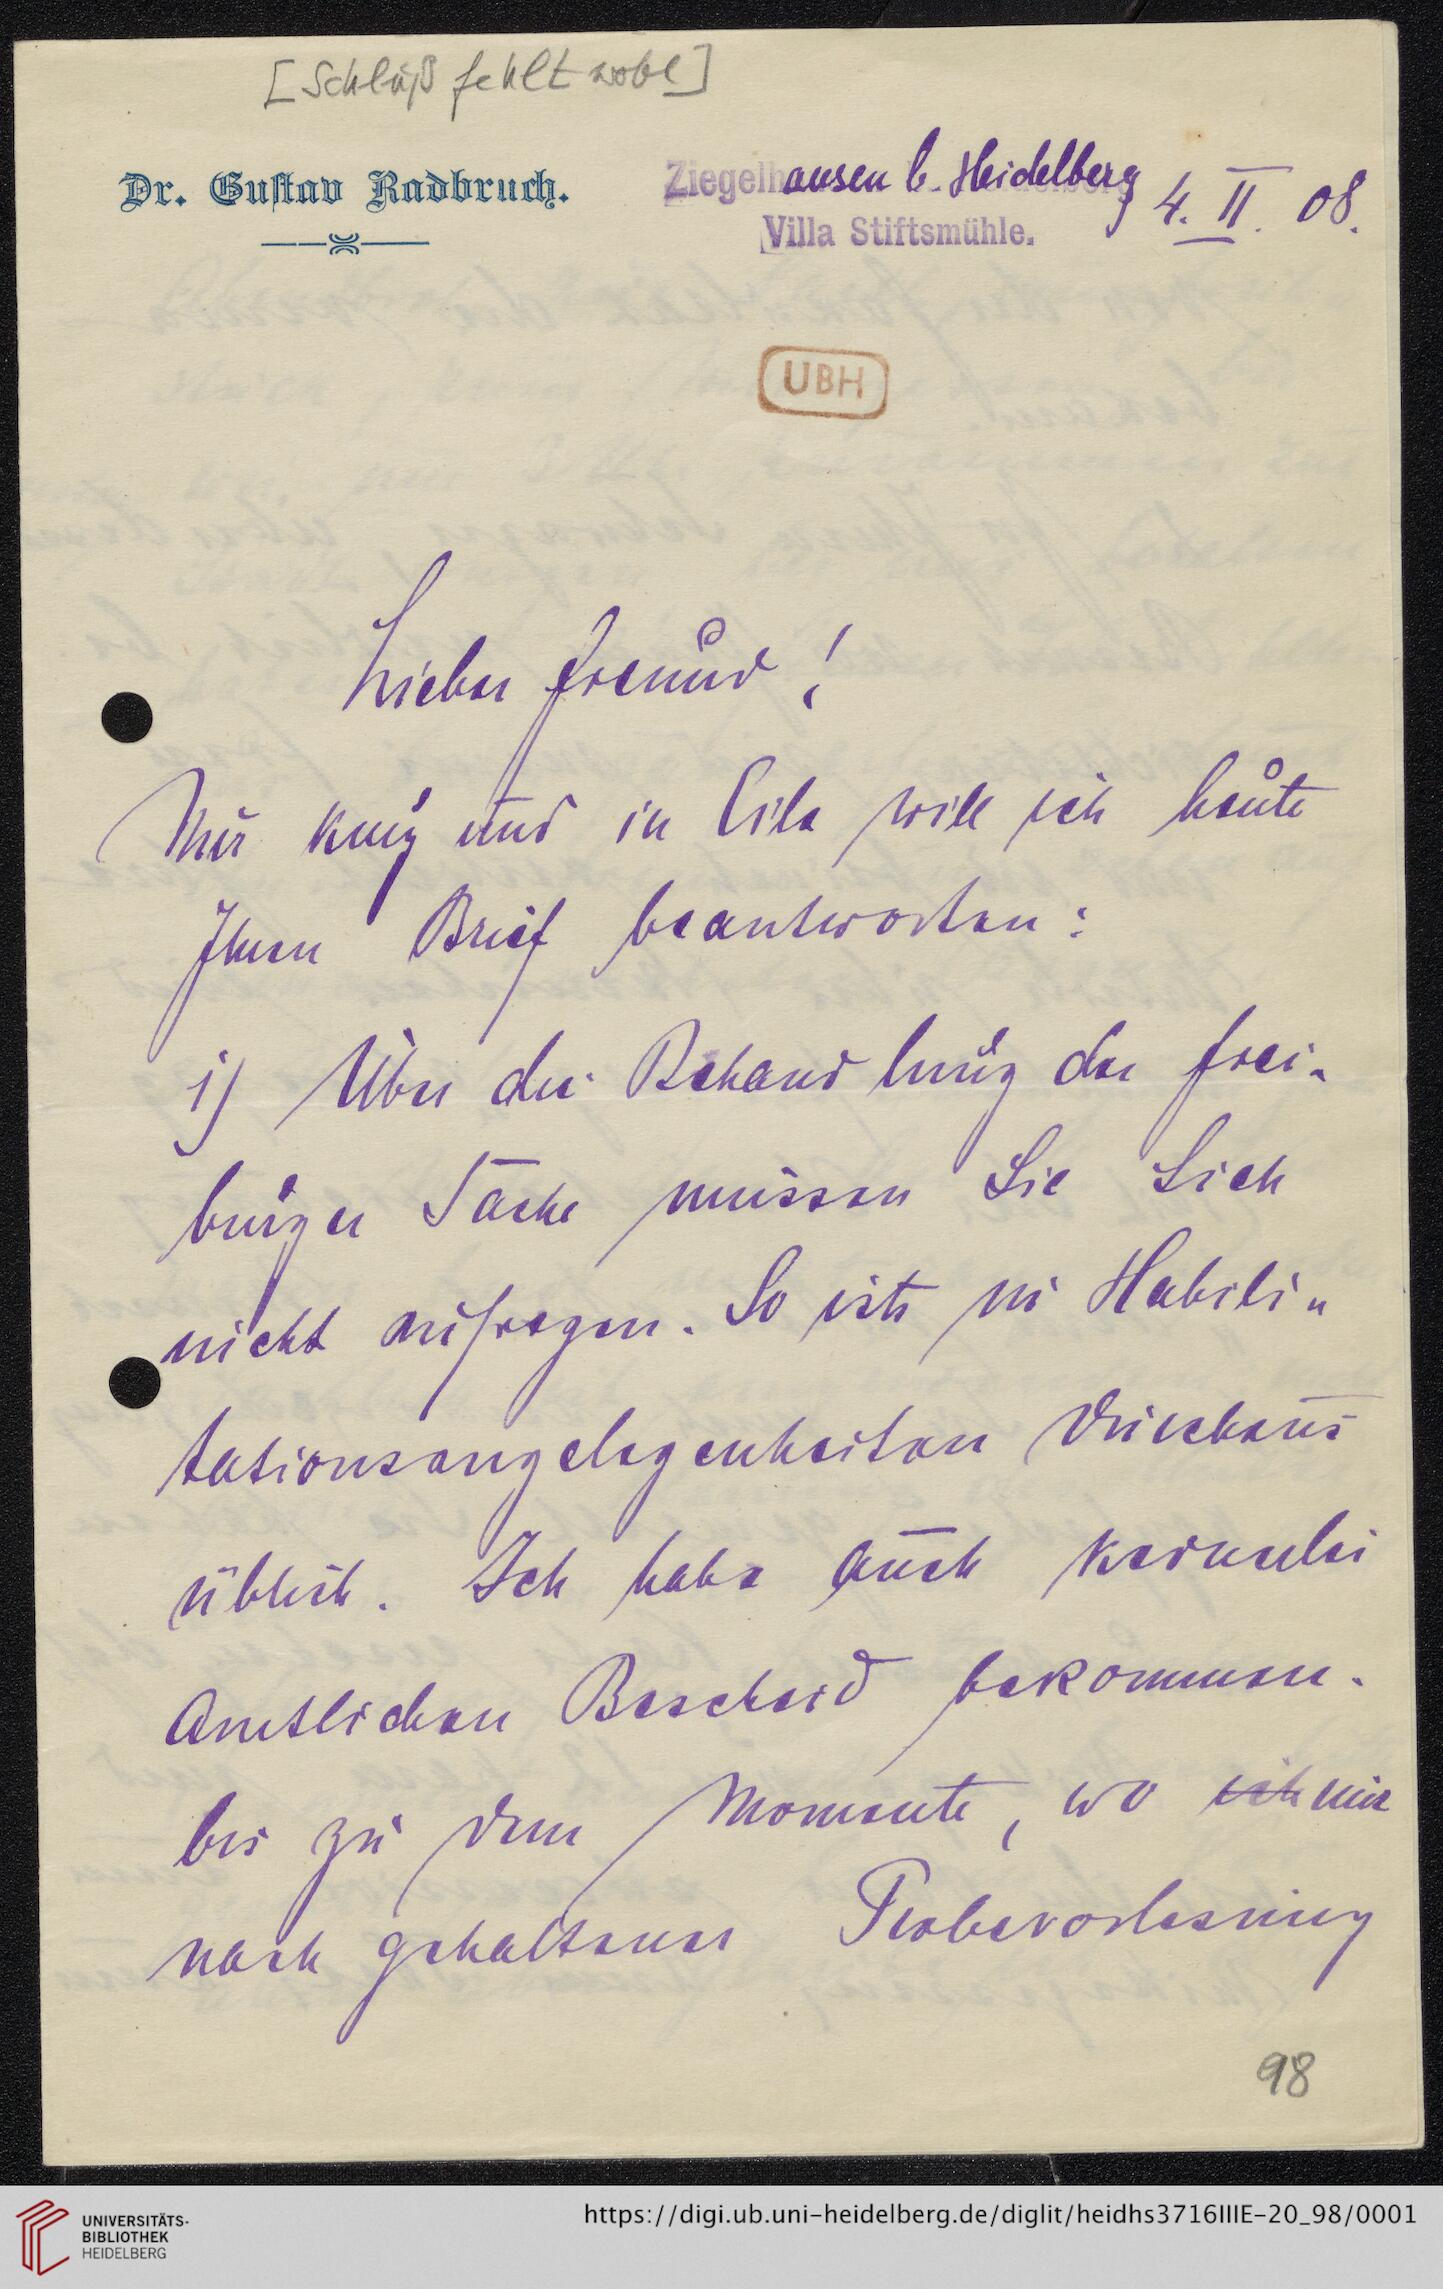 [Schluß fehlt wohl]
Dr. Gustav Radbruch.
Ziegelhausen b. Heidelberg 4. II. 08.
Villa Stiftsmühle.
UBH
Lieber Freund!
Nur kurz und in Eile will ich heute
Ihren Brief beantworten:
1) Über die Behandlung der Frei-
burger Sache müssen Sie Sich
nicht aufregen. So ists in Habili-
tationsangelegenheiten durchaus
üblich. Ich habe auch keinerlei
amtlichen Bescheid bekommen.
bis zu dem Momente, wo ich mir
nach gehaltener Probevorlesung
98
UNIVERSITÄTS-
BIBLIOTHEK
HEIDELBERG
https://digi.ub.uni-heidelberg.de/diglit/heidhs3716IIIE-20_98/0001